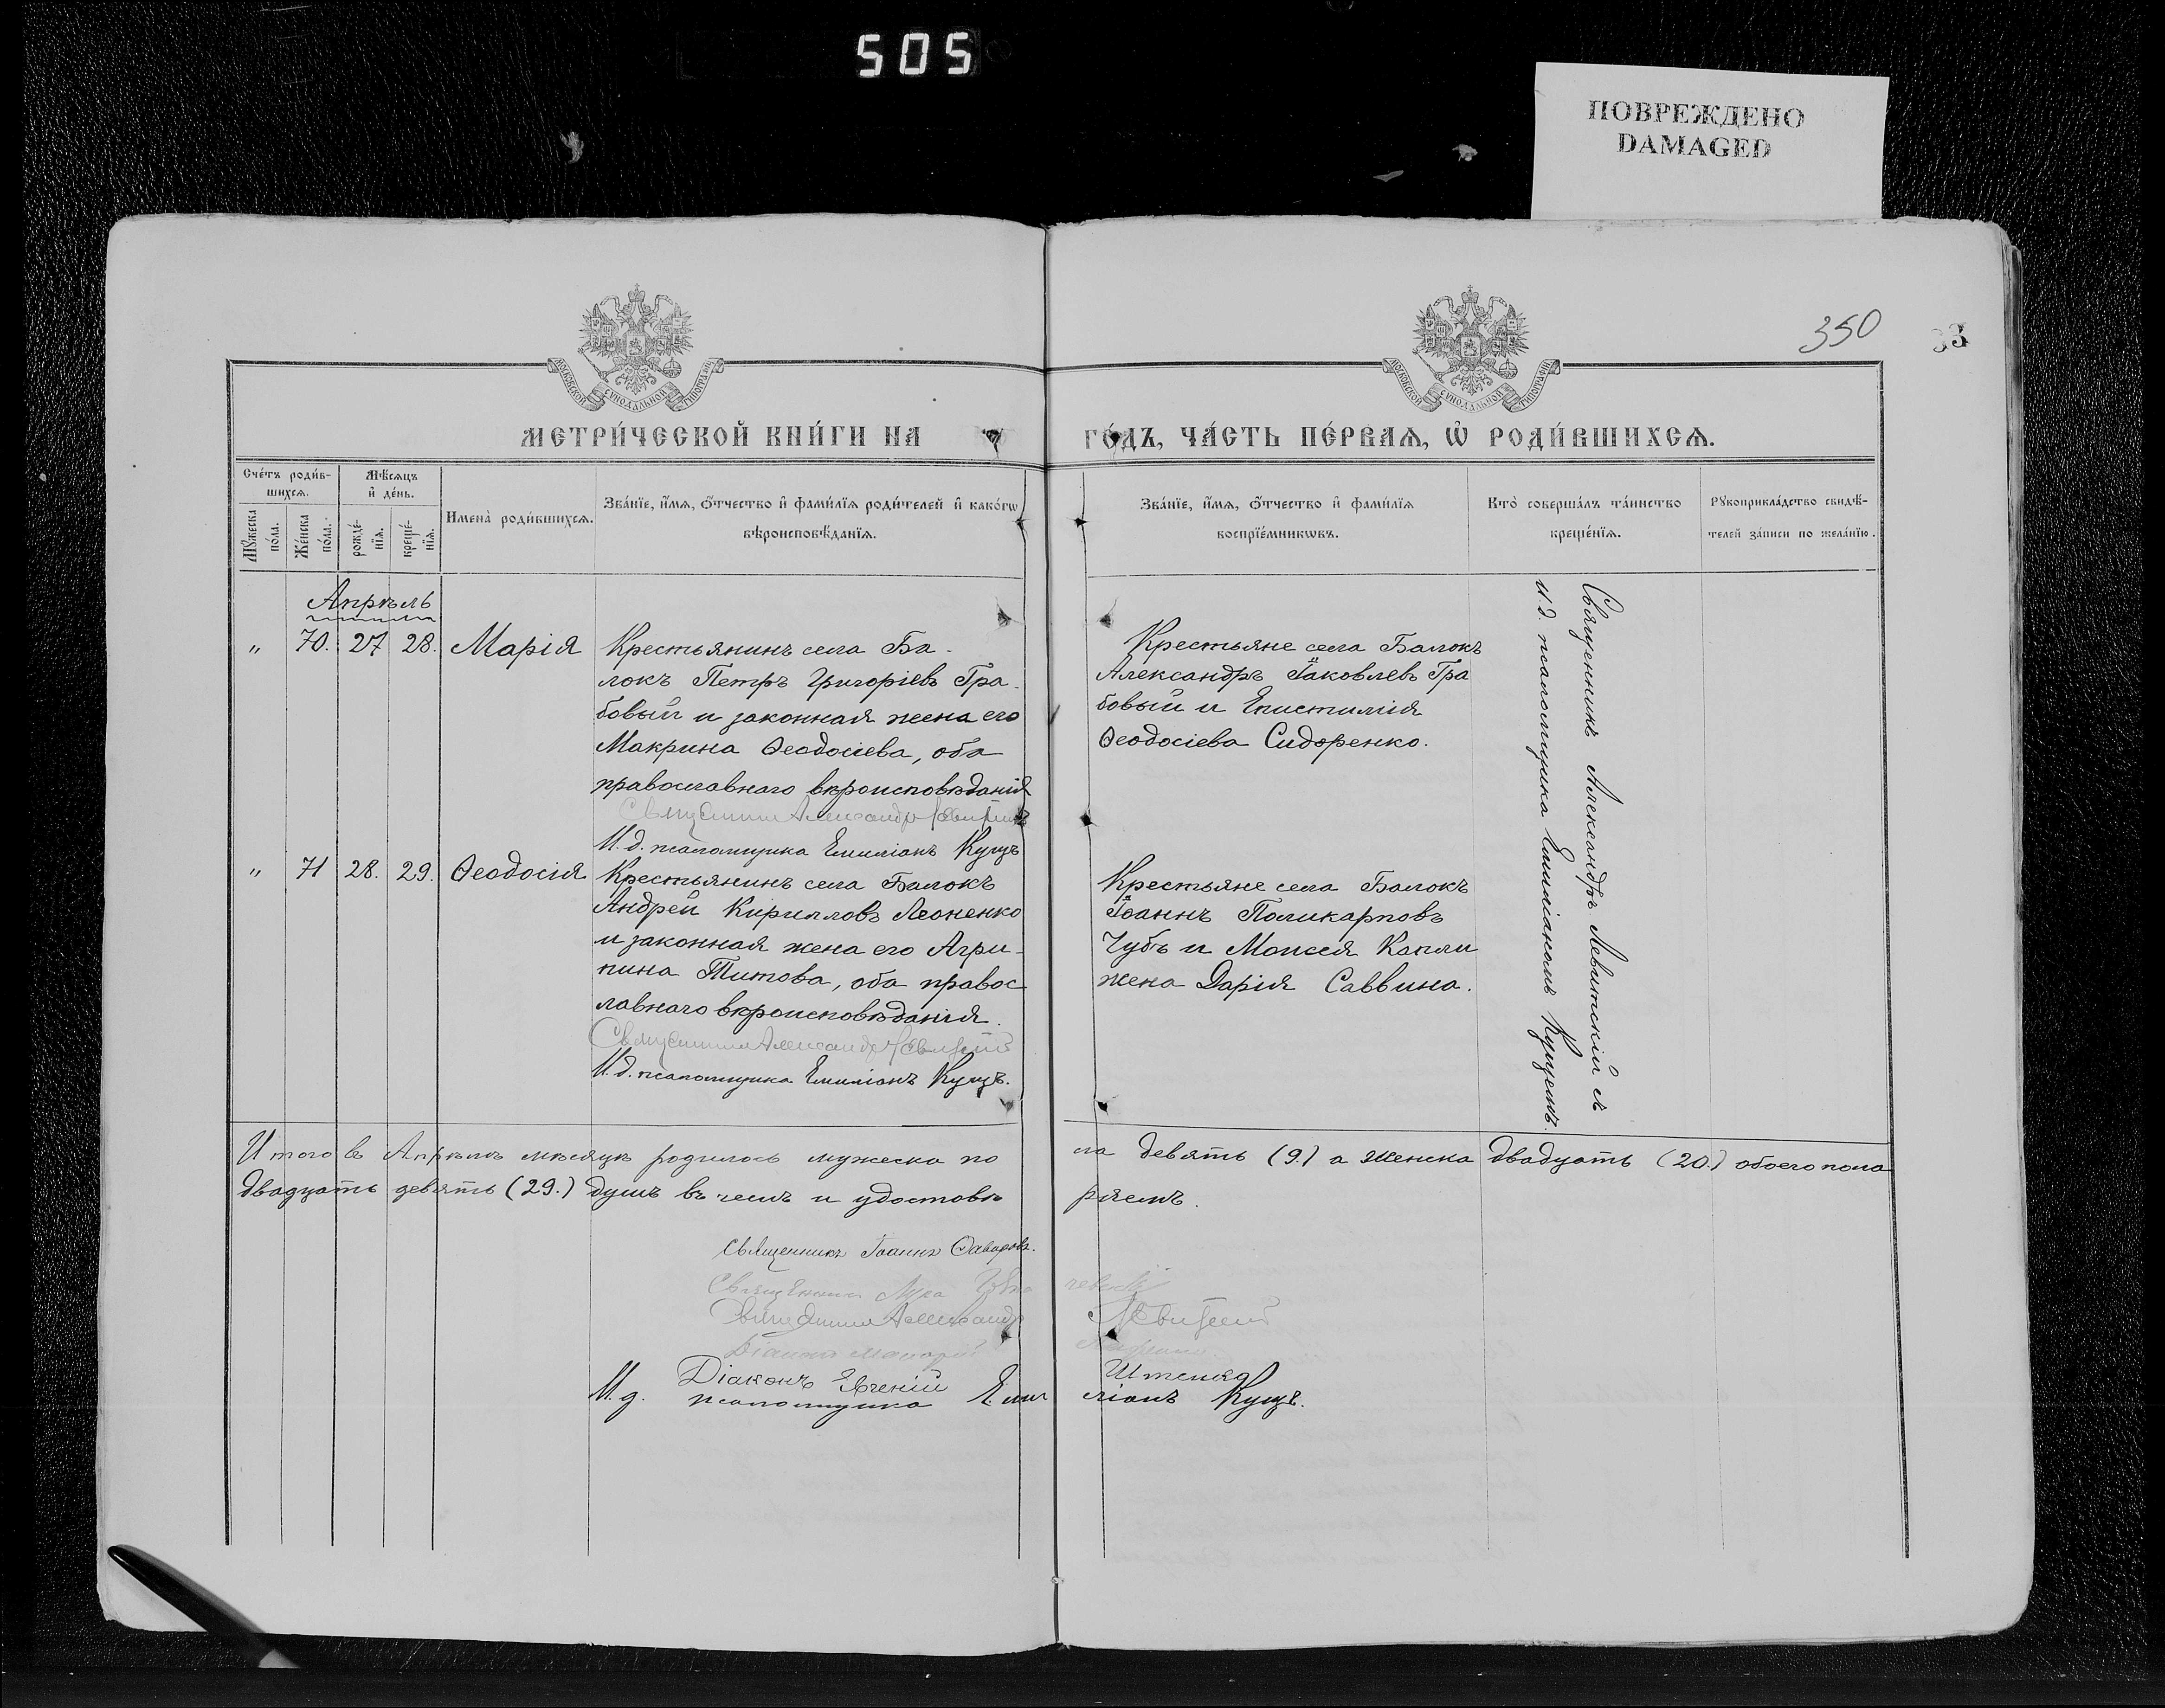 505
ПОВРЕЖДЕНО
DAMAGED
350
33
МОСКОВСКОЙ СУНОДАЛЬНОЙ ТИПОГРАФІИ
МОСКОВСКОЙ СУНОДАЛЬНОЙ ТИПОГРАФІИ
МЕТРИ́ЧЕСКОЙ КНИ́ГИ НА
ГО́ДЪ, ЧА́СТЬ ПЕ́РВАѦ, Ѡ҆ РОДИ́ВШИХСѦ.
Сче́тъ роди́в-
шихсѧ.
Мѣ́сѧцъ
и҆ де́нь.
Мꙋ́жеска
по́ла.
Же́нска
по́ла.
рожде́-
нїѧ.
креще́-
нїѧ.
Имена̀ роди́вшихсѧ.
Зва́нїе, и҆́мѧ, ѻ҆́тчество и҆ фами́лїѧ роди́телей и҆ како́гѡ
вѣроисповѣ́данїѧ.
Зва́нїе, и҆́мѧ, ѻ҆́тчество и҆ фами́лїѧ
воспрїе́мникѡвъ.
Кто̀ соверша́лъ та́инство
креще́нїѧ.
Рꙋкоприкла́дство свидѣ́-
телей за́писи по жела́нїю.
Апрѣль
" 70. 27 28. Марія
Крестьянинъ села Ба-
локъ Петръ Григоріевъ Гра-
бовый и законная жена его
Макрина Ѳеодосіева, оба
православнаго вѣроисповѣданія
Священникъ Александръ Левитскій
И. д. псаломщика Емиліанъ Кущъ
Крестьяне села Балокъ
Александръ Іаковлевъ Гра
бовый и Епистимія
Ѳеодосіева Сидоренко.
Священникъ Александръ Левитскій съ
и. д. псаломщика Емиліаномъ Кущемъ.
" 71 28. 29. Ѳеодосія
Крестьянинъ села Балокъ
Андрей Кирилловъ Леоненко
и законная жена его Агри-
пина Титова, оба правос
лавнаго вѣроисповѣданія.
Священникъ Александръ Левитскій
И. д. псаломщика Емиліанъ Кущъ.
Крестьяне села Балокъ
Іоаннъ Поликарповъ
Чубъ и Моисея Капли
жена Дарія Саввина.
Итого въ Апрѣлѣ мѣсяцѣ родилось мужеска по
ла девять (9.) а женска двадцать (20.) обоего пола
двадцать девять (29.) душъ въ чемъ и удостовѣ
ряемъ.
Священникъ Іоаннъ Ѳаворовъ.
Священникъ
Священникъ Александръ Левитскій
Діаконъ
Діаконъ Евгеній
И. д. псаломщика Емиліанъ Кущъ.